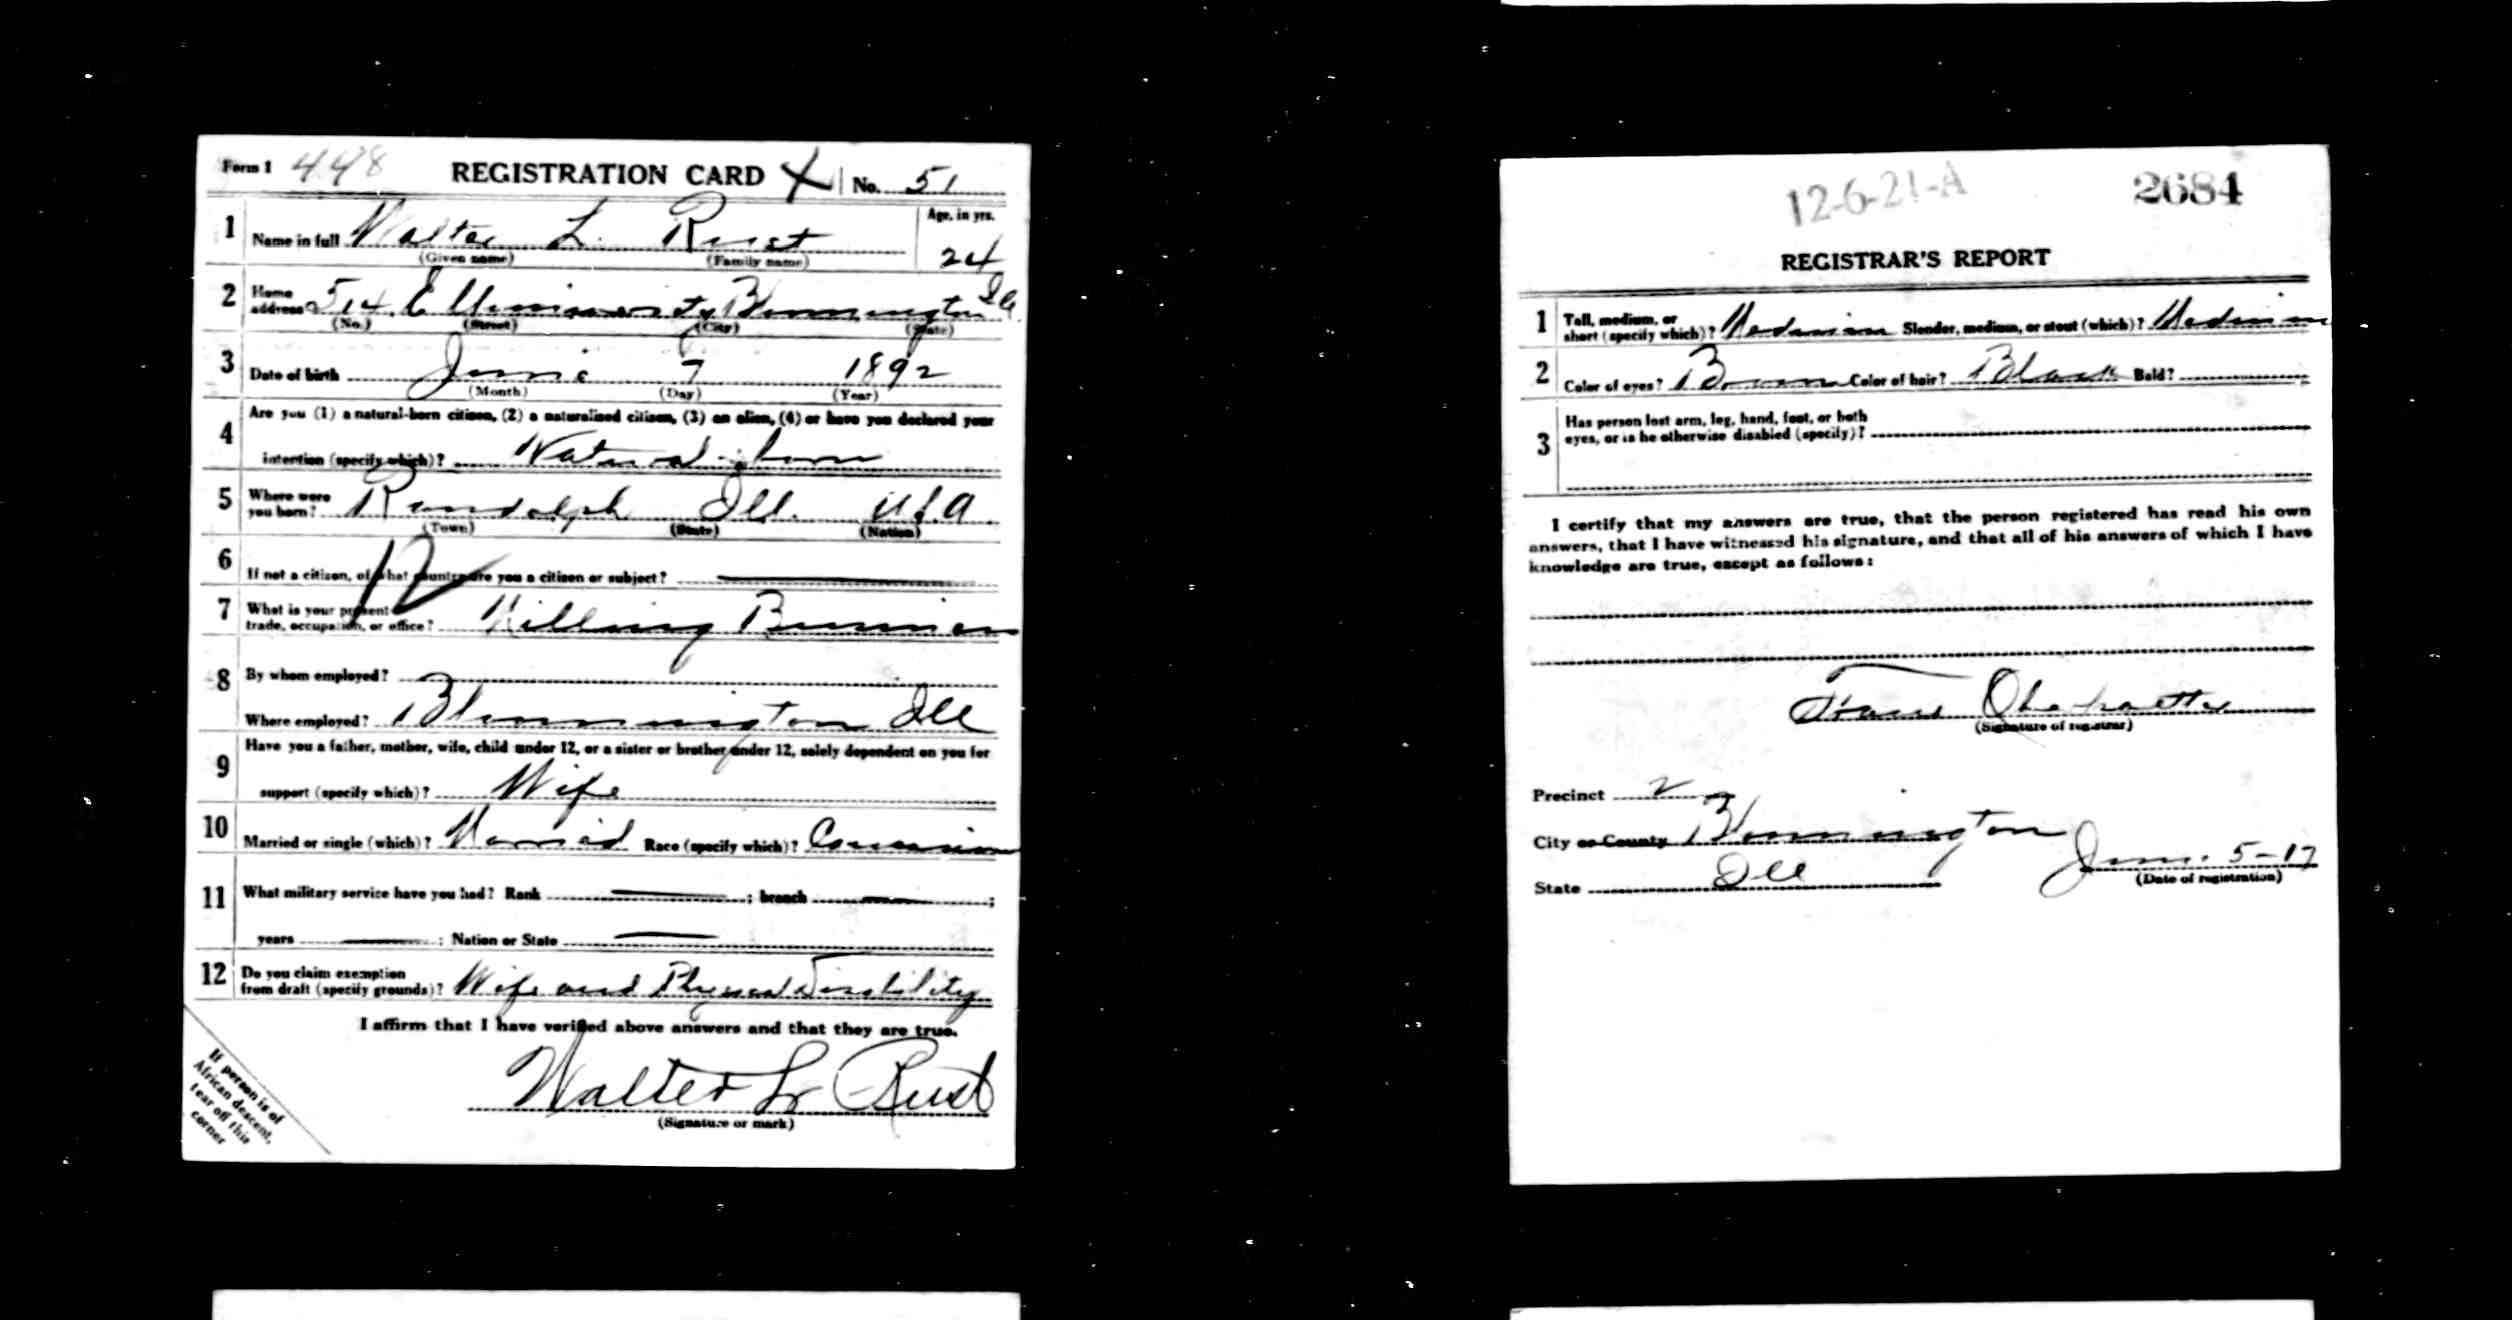 Form 1 448 REGISTRATION CARD X No. 51
1 Name in full Walter L. Rust
(Given name) (Family name)
Age, in yrs.
24
2 Home address 514 E University Bloomington Ill
(No.) (Street) (City) (State)
3 Date of birth June 7 1892
(Month) (Day) (Year)
4 Are you (1) a natural-born citizen, (2) a naturalized citizen, (3) an alien, (4) or have you declared your
intention (specify which)? Natural-born
5 Where were you born? Randolph Ill. U.S.A.
(Town) (State) (Nation)
6 If not a citizen, of what country are you a citizen or subject?
12
7 What is your present trade, occupation, or office? Milling Business
8 By whom employed?
Where employed? Bloomington Ill
9 Have you a father, mother, wife, child under 12, or a sister or brother under 12, solely dependent on you for
support (specify which)? Wife
10 Married or single (which)? Married Race (specify which)? Caucasian
11 What military service have you had? Rank ; branch ;
years ; Nation or State
12 Do you claim exemption from draft (specify grounds)? Wife and Physical Disability
I affirm that I have verified above answers and that they are true.
Walter L. Rust
(Signature or mark)
If person is of
African descent,
tear off this
corner
12-6-21-A 2684
REGISTRAR'S REPORT
1 Tall, medium, or short (specify which)? Medium Slender, medium, or stout (which)? Medium
2 Color of eyes? Brown Color of hair? Black Bald?
3 Has person lost arm, leg, hand, foot, or both
eyes, or is he otherwise disabled (specify)?
I certify that my answers are true, that the person registered has read his own
answers, that I have witnessed his signature, and that all of his answers of which I have
knowledge are true, except as follows:
(Signature of registrar)
Precinct 2
City or County Bloomington
State Ill June 5-17
(Date of registration)